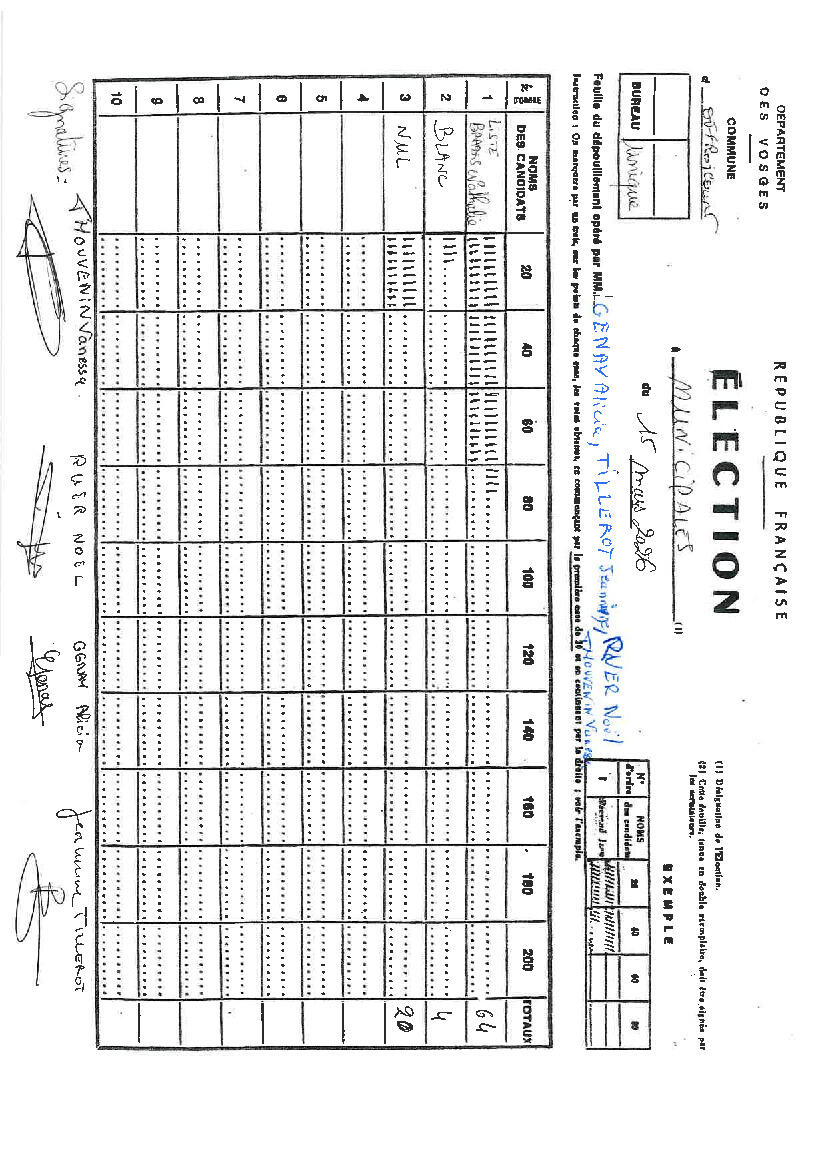 DEPARTEMENT
DES VOSGES
COMMUNE
d
BUREAU
Unique
RÉPUBLIQUE FRANÇAISE
ÉLECTION
à MUNICIPALES (1)
du 15 mars 2026
(1) Désignation de l'Election.
(2) Cette feuille, tenue en double exemplaire, doit être signée par
les scrutateurs.
EXEMPLE
N° d'ordre NOMS des candidats 20 40 60 80
1
Feuille du dépouillement opéré par MM. GENAY Alicia, TILLEROT Jeannine, RUER Noël
THOUVENIN Vanessa
Instruction : On marquera par un trait, sur les points de chaque case, les voix obtenues, en commençant par la première case de 20 et en continuant par la droite ; voir l'exemple.
NOMS DES CANDIDATS 20 40 60 80 100 120 140 160 180 200 TOTAUX
1 LISTE Nathalie 64
2 BLANC 4
3 NUL 20
4
5
6
7
8
9
10
Signatures. THOUVENIN Vanessa RUER NOËL GENAY Alicia Jeannine TILLEROT